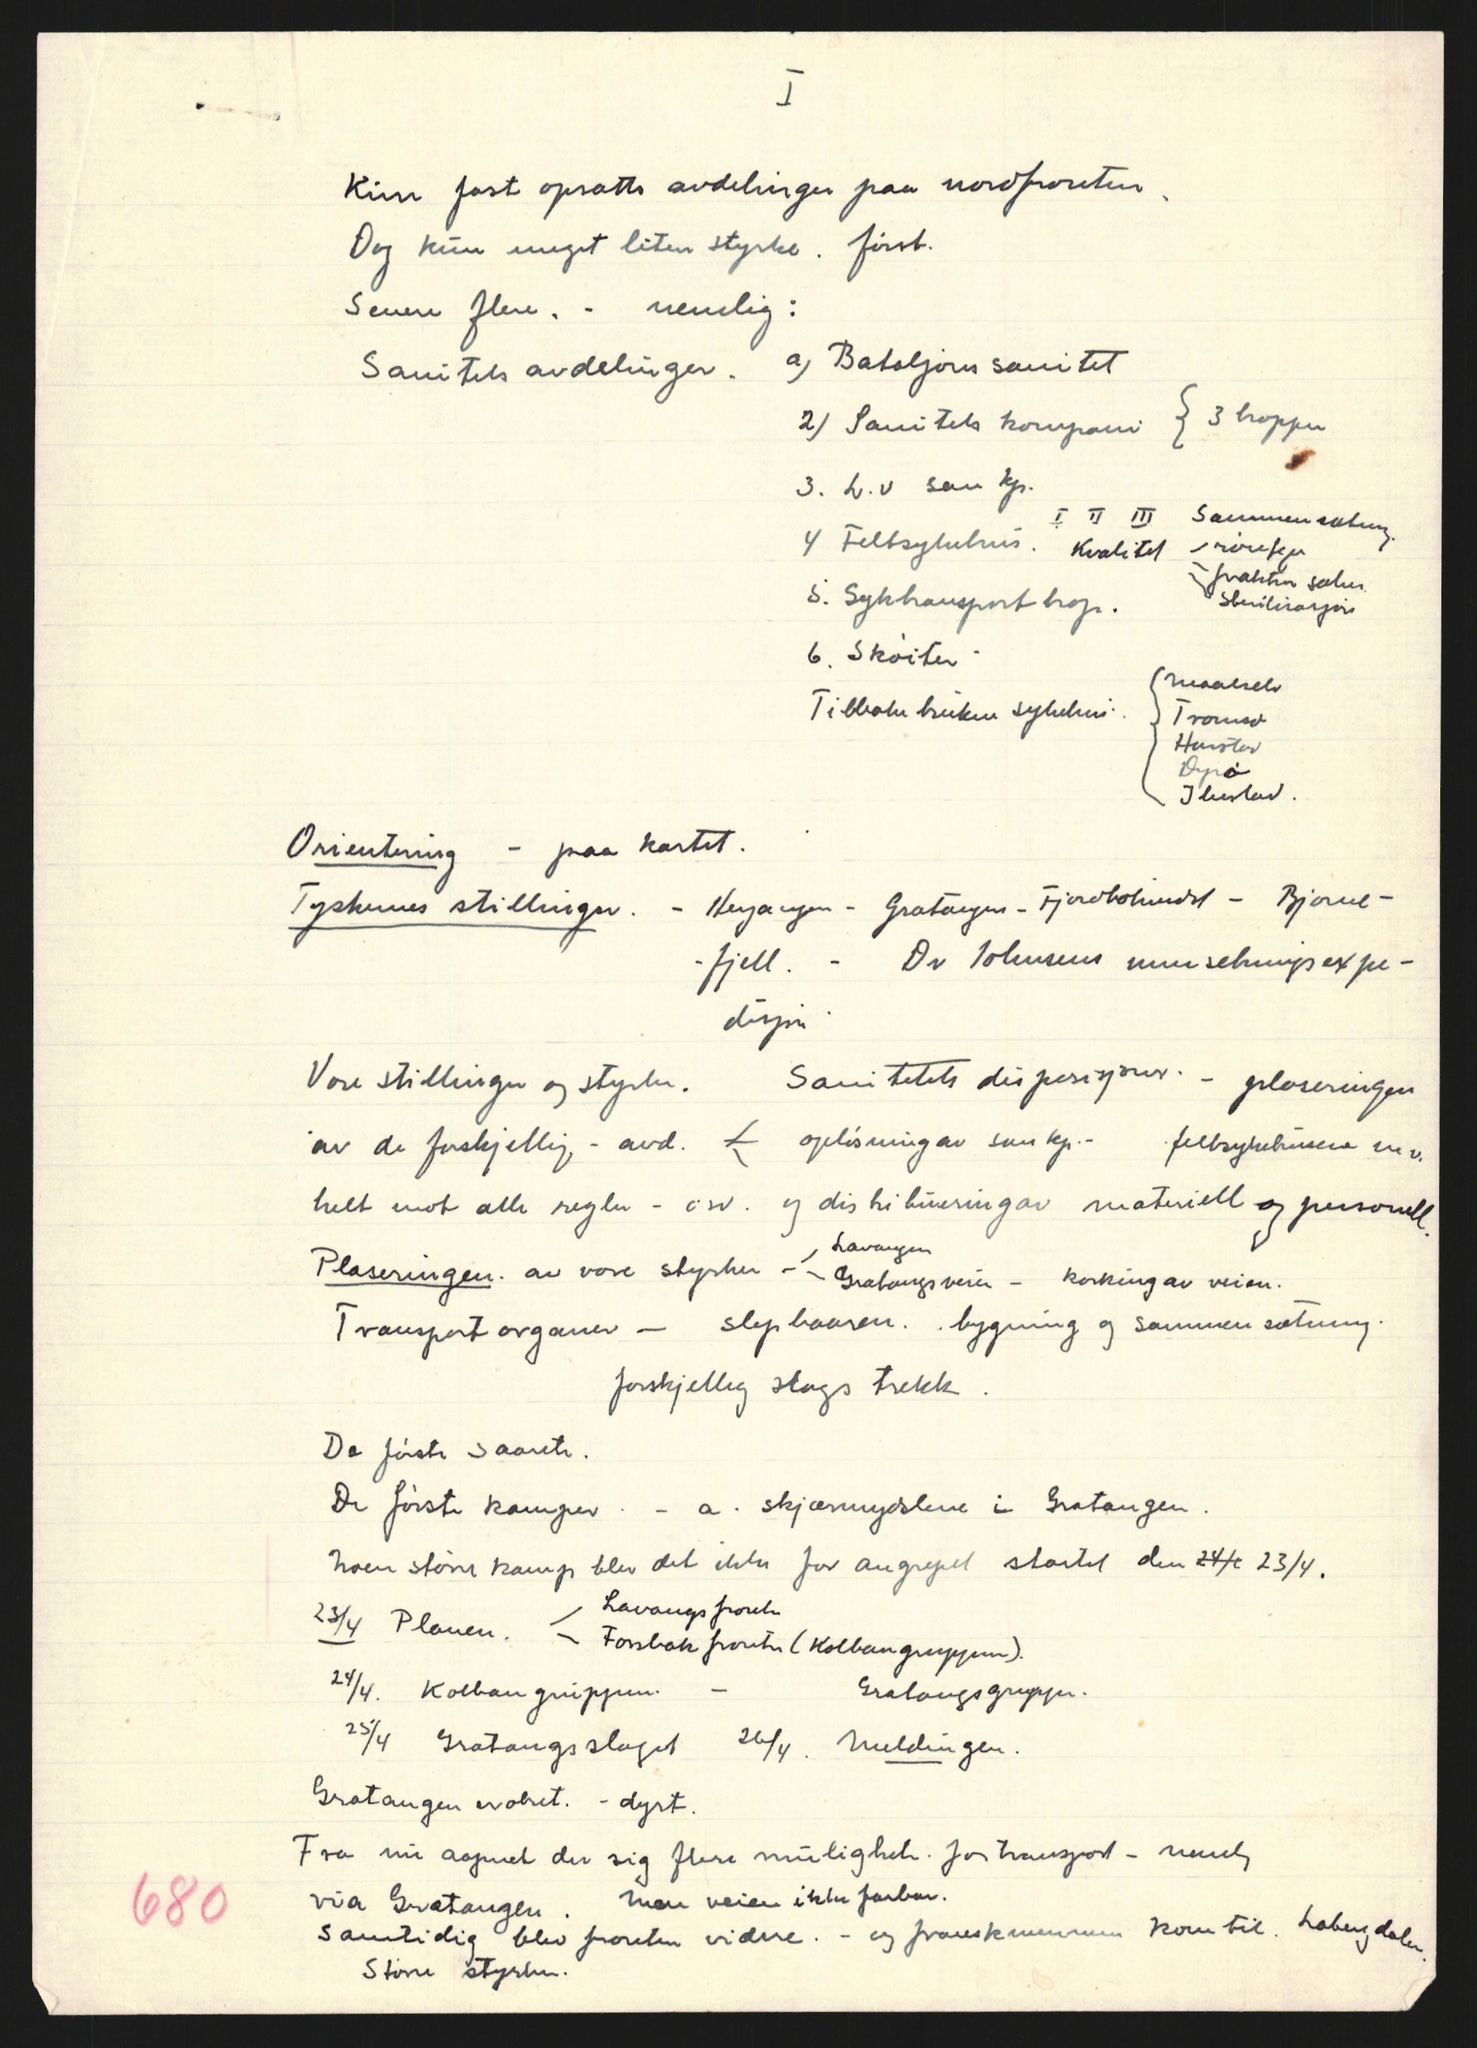 I
Kun fast opsatte avdelinger paa nordfronten.
Dog kun meget liten styrke. først.
Senere flere. - nemlig:
Sanitets avdelinger. a) Bataljons sanitet
2) Sanitets kompani { 3 tropper
3. L.v san kp.
4 Feltsykehus. I II III Sammensætning.
Kvalitet - røntgen
- fraktur saker
sterilisasjon
5. Syketransport trop.
6. Skøiter
Tilbake brukne sykehus. { Maalselv
Tromsø
Harstad
Dyrø
Ibestad.
Orientering - paa kartet.
Tyskernes stillinger. - Herjangen - Gratangen - Fjordbotneidet - Bjørne-
-fjell. - Dr Johnsens undsetningsexpe-
disjon
Vore stillinger og styrker. Sanitetets disposisjoner. - plaseringen
av de forskjellig - avd. opløsning av san kp. - feltsykehusene m.v.
helt mot alle regler - osv. og distribuering av materiell og personell.
Plaseringen. av vore styrker - Lavangen
- Gratangsveien - korking av veien.
Transport organer - slepbaaren. bygning og sammensætning.
forskjellig slags trekk.
De første saarete.
De første kamper. - a. skjærmydslene i Gratangen.
Noen større kamp blev det ikke før angrepet startet den 24/4 23/4.
23/4 Planen. Lavangsfronten
Fossbakfronten (Kolbangruppen).
24/4. Kolbangruppen. - Gratangsgruppen.
25/4 Gratangsslaget 26/4. Meldingen.
Gratangen erobret. - dyrt.
Fra nu aapnet der sig flere muligheter for transport - nemlig
via Gratangen. Men veien ikke farbar.
Samtidig blev fronten videre. - og franskmennene kom til. Labergdalen.
Større styrker.
680